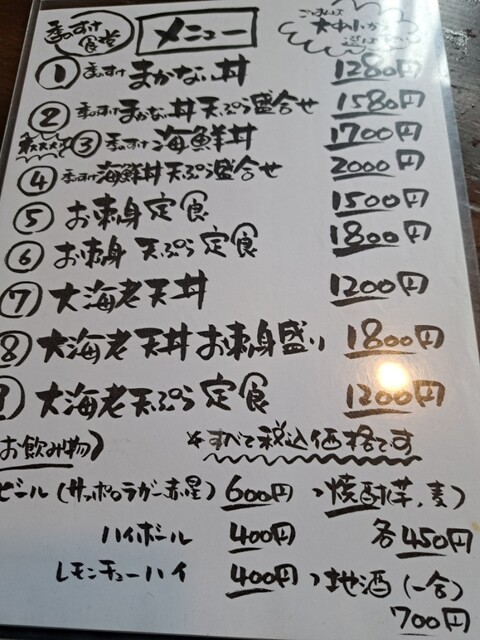 季っすけ食堂
メニュー
ごはんは
大中小から
選べます
① 季っすけ まかない丼 1280円
② 季っすけまかない丼 天ぷら盛合せ 1580円
③ 季っすけ 海鮮丼 1700円
④ 季っすけ 海鮮丼 天ぷら盛合せ 2000円
⑤ お刺身定食 1500円
⑥ お刺身 天ぷら定食 1800円
⑦ 大海老天丼 1200円
⑧ 大海老天丼 お刺身盛り 1800円
⑨ 大海老天ぷら定食 1200円
お飲み物) *すべて税込価格です
ビール(サッポロラガー赤星) 600円 焼酎(芋、麦)
ハイボール 400円 各450円
レモンチューハイ 400円 地酒(一合)
700円